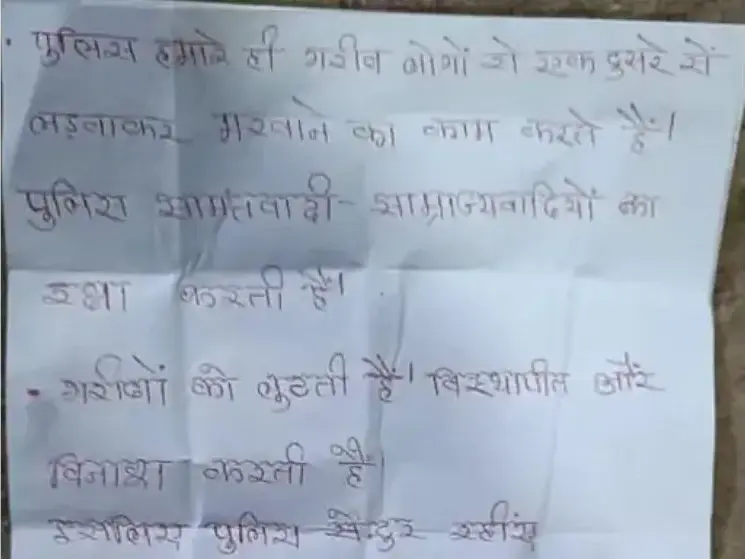 • पुलिस हमारे ही गरीब लोगों को एक दुसरे से
लड़वाकर मरवाने का काम करते हैं।
पुलिस सामंतवादी - साम्राज्यवादियों का
रक्षा करती हैं।
• गरीबों को लुटती हैं। विस्थापीत और
विनाश करती हैं।
इसलिए पुलिस से दुर रहींए